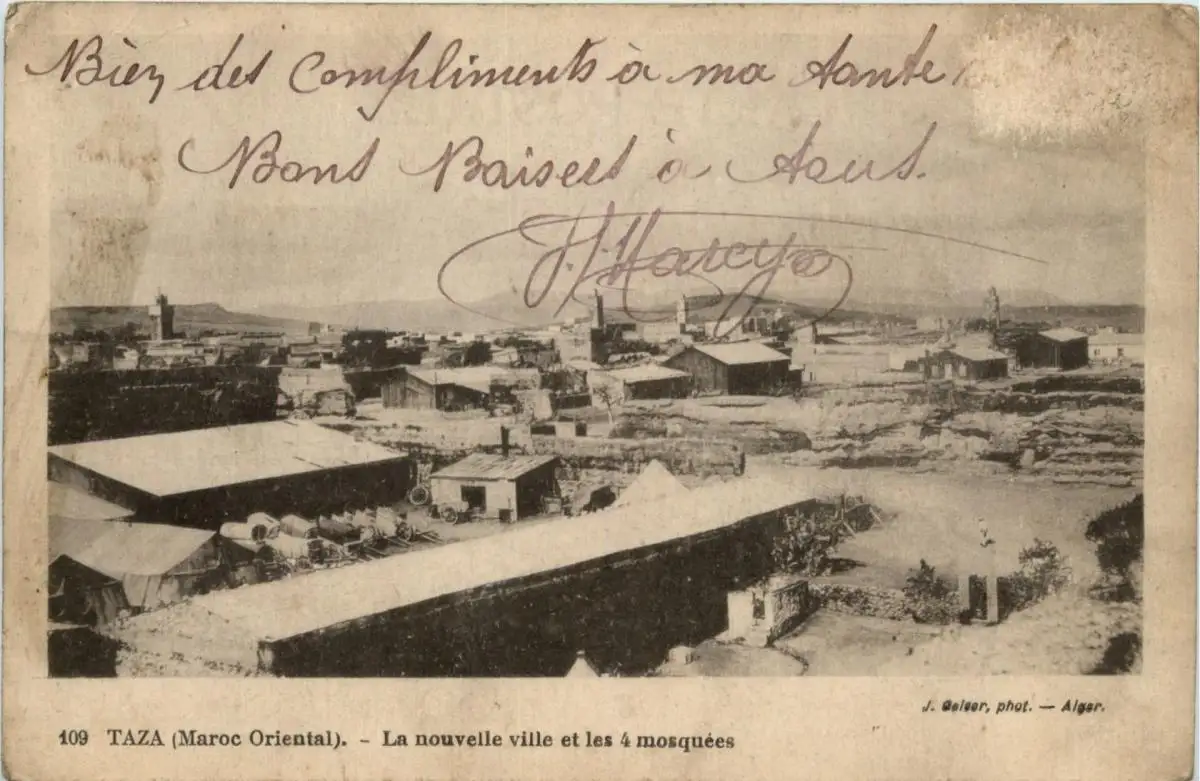 Bien des Compliments à ma tante
Bons Baisers à tous.
J. Geiser, phot. — Alger.
109 TAZA (Maroc Oriental). - La nouvelle ville et les 4 mosquées